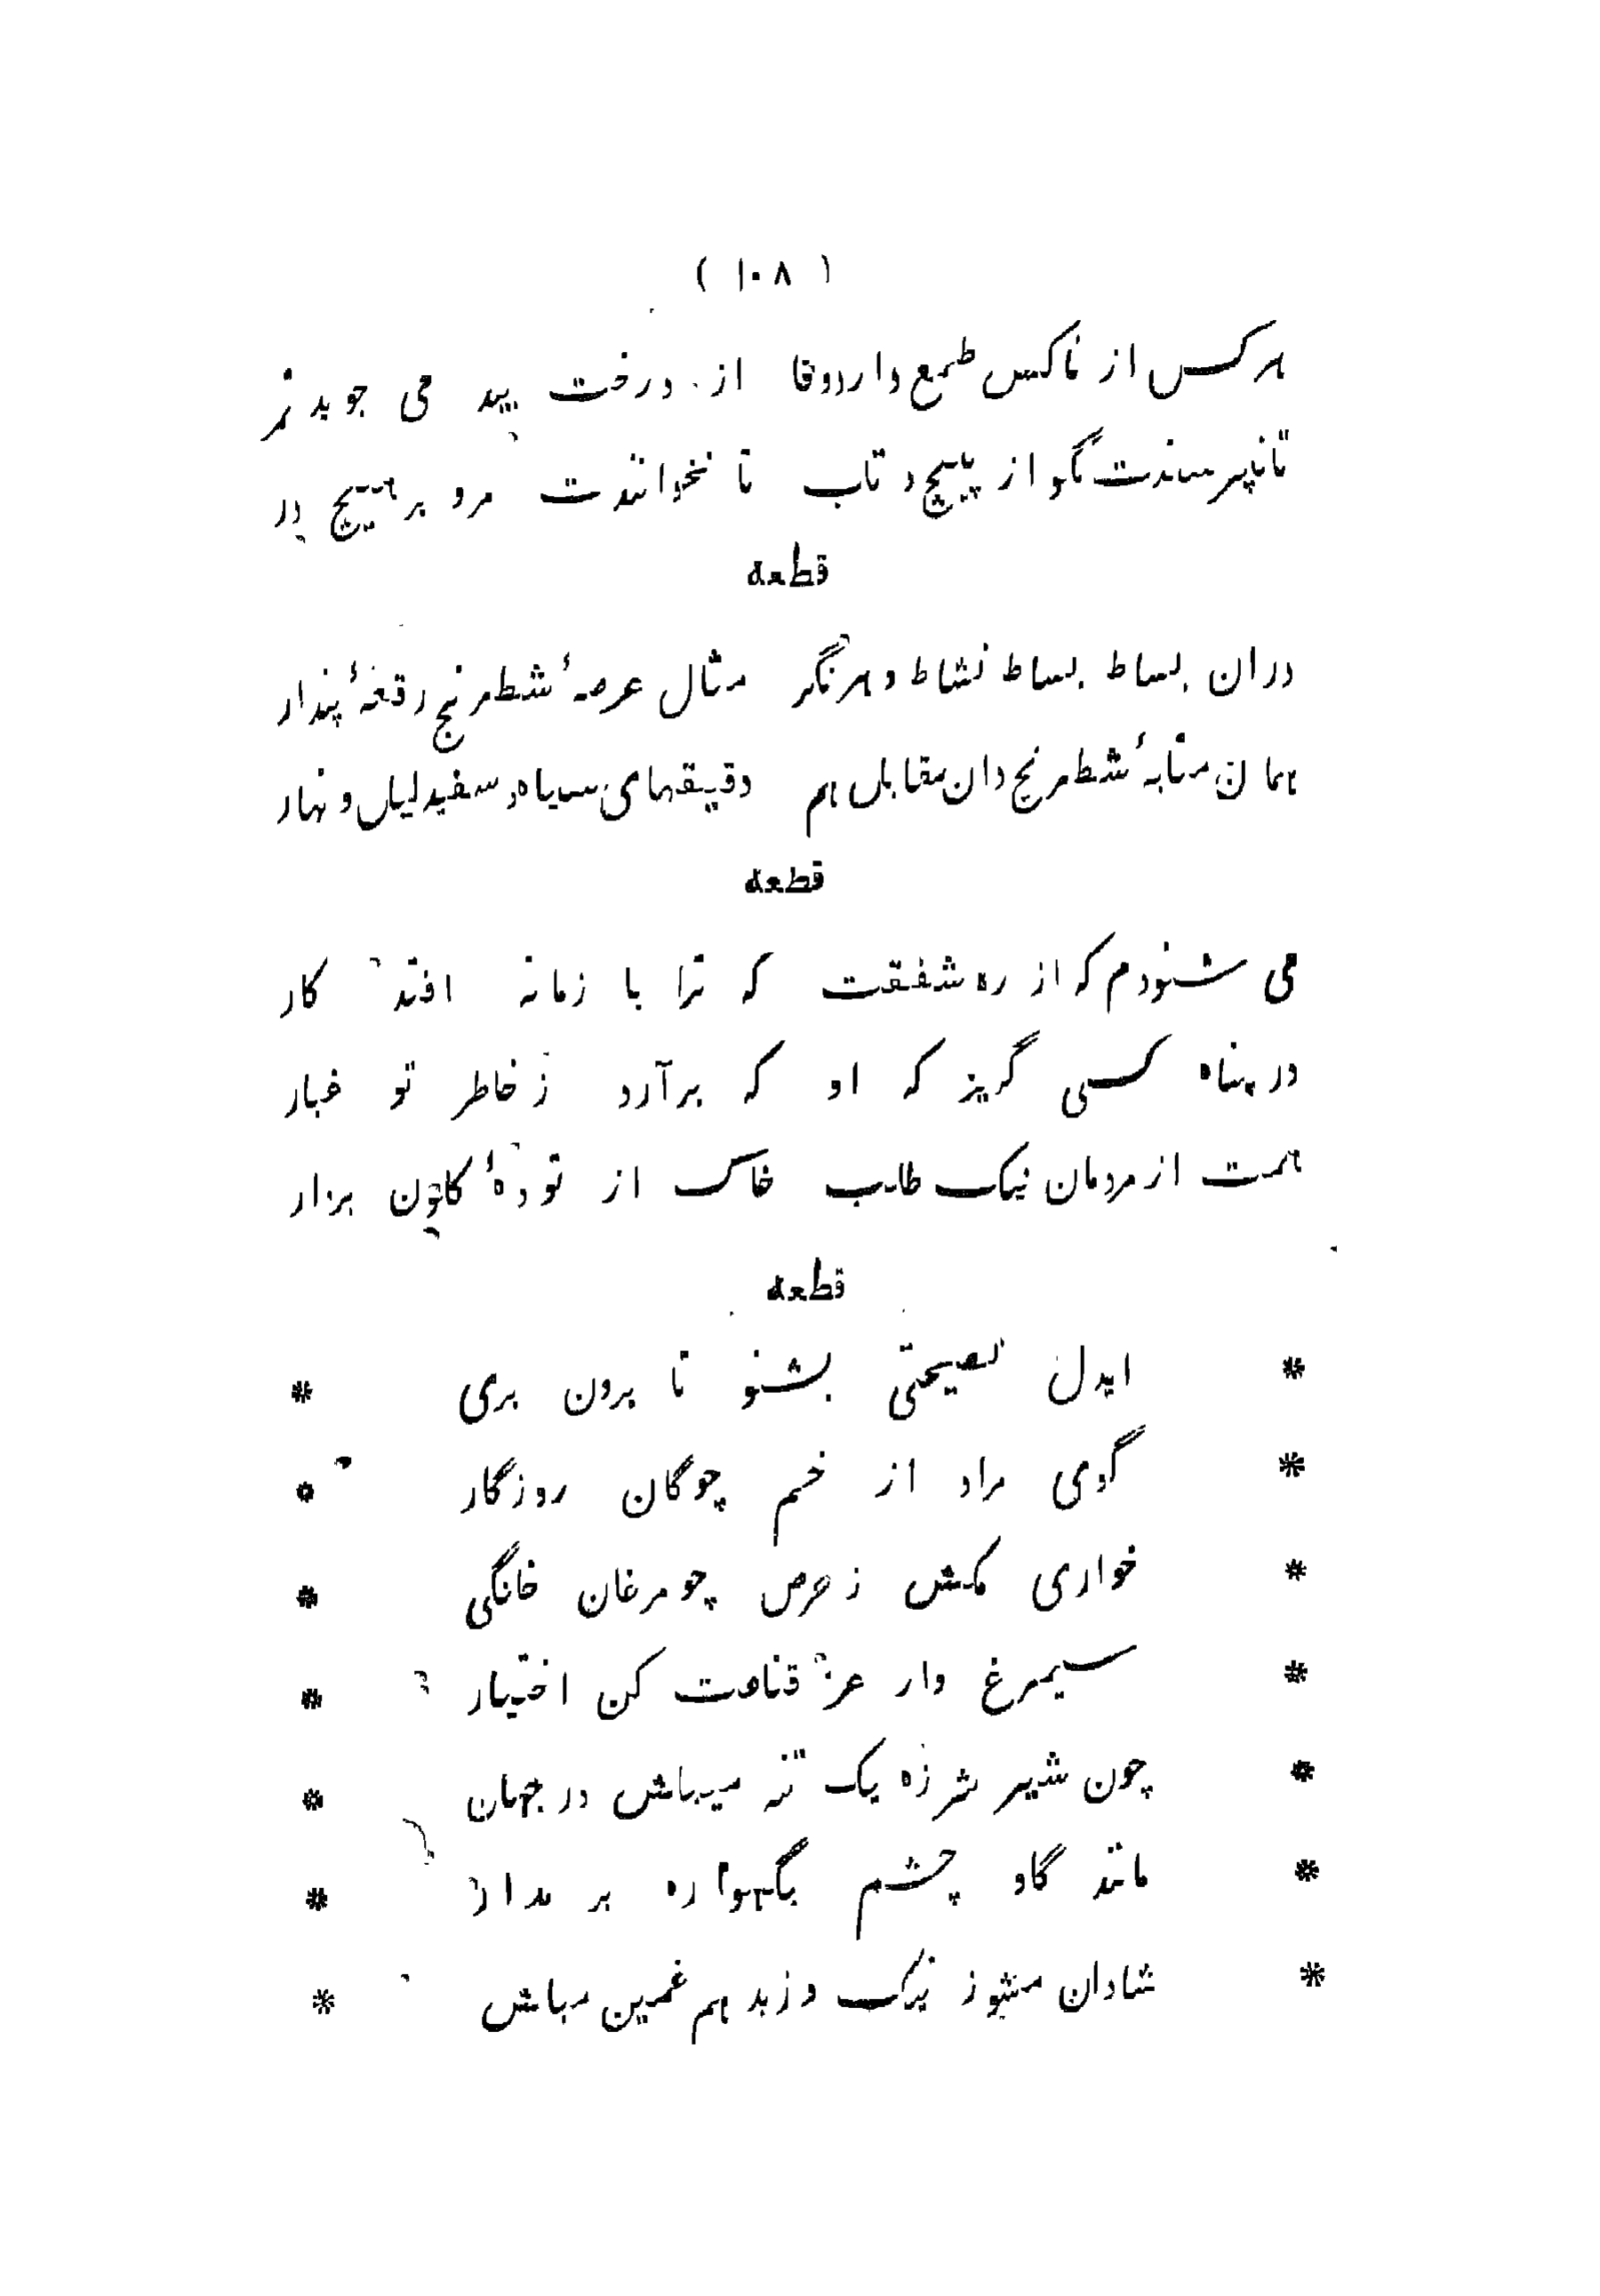 ( ۱۰۸ )
هر کس از ناکس طمع دارد وفا از درخت بید می جوید ثمر
تا نپرسندت مگو از پیچ و تاب تا نخوانندت مرو بر هیچ در
قطعه
دران بساط بساط نشاط دهر نگر مثال عرصهٔ شطرنج رقعهٔ پندار
همان مثابهٔ شطرنج دان مقابل هم دقیقهای سیاه و سفید لیل و نهار
قطعه
می شنودم که از ره شفقت که ترا با زمانه افتد کار
در پناه کسی گریز که او که برآرد ز خاطر تو غبار
همت از مردمان نیک طلب خاک از تودهٔ کلون بردار
قطعه
* ایدل نصیحتی بشنو تا برون بری *
* گوی مراد از خم چوگان روزگار *
* خواری مکش ز حرص چو مرغان خانگی *
* سیمرغ وار عز قناعت کن اختیار *
* چون شیر شرزه یک تنه میباش در جهان *
* مانند گاو چشم بگهواره بر مدار *
* شادان مشو ز نیک و ز بد هم غمین مباش *